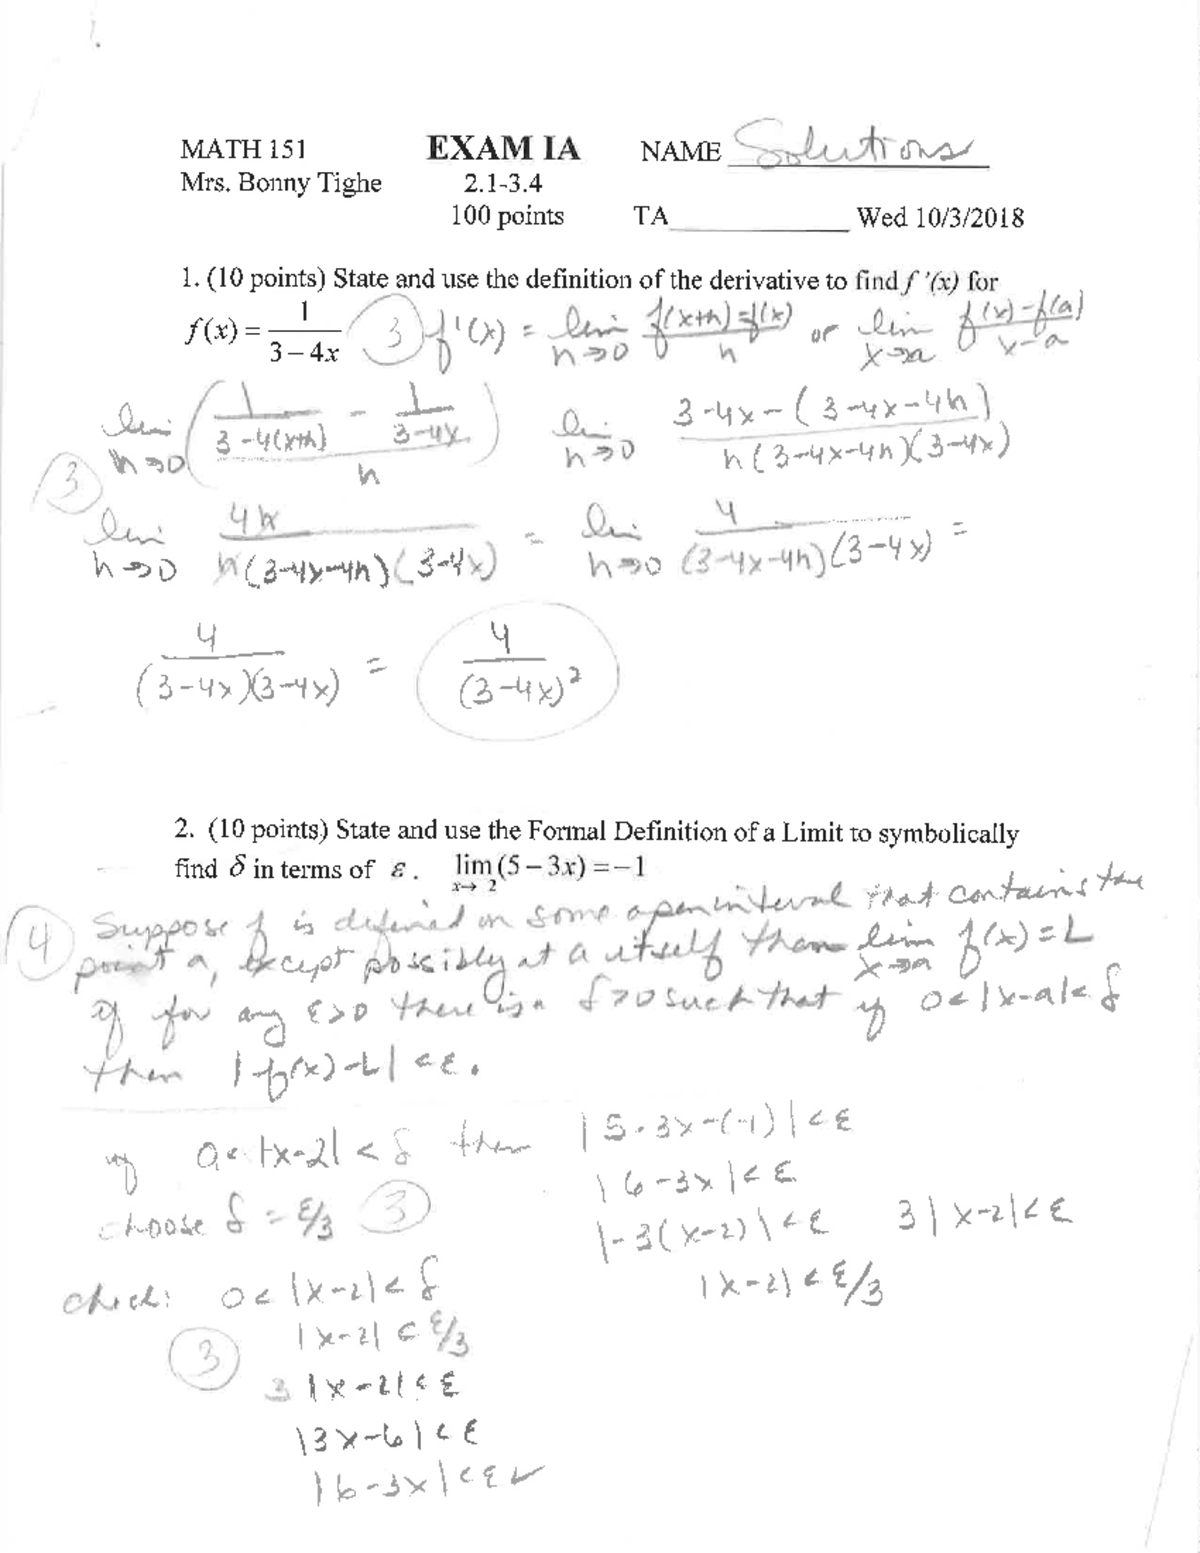 MATH 151 EXAM IA NAME Solutions
Mrs. Bonny Tighe 2.1-3.4
100 points TA Wed 10/3/2018
1. (10 points) State and use the definition of the derivative to find f '(x) for
f(x) = 1/(3 – 4x) (3) f'(x) = lim h→0 (f(x+h) - f(x))/h or lim x→a (f(x) - f(a))/(x-a)
(3) lim h→0 (1/(3-4(x+h)) - 1/(3-4x))/h lim h→0 (3-4x-(3-4x-4h))/(h(3-4x-4h)(3-4x))
lim h→0 4h/(h(3-4x-4h)(3-4x)) = lim h→0 4/((3-4x-4h)(3-4x)) =
4/((3-4x)(3-4x)) = 4/(3-4x)²
2. (10 points) State and use the Formal Definition of a Limit to symbolically
find δ in terms of ε. lim x→2 (5 – 3x) = –1
(4) Suppose f is defined on some open interval that contains the
point a, except possibly at a itself than lim x→a f(x) = L
if for any ε>0 there is a δ>0 such that if 0<|x-a|<δ
then |f(x)-L|<ε.
if 0<|x-2|<δ then |5-3x-(-1)|<ε
|6-3x|<ε
choose δ = ε/3 (3) |-3(x-2)|<ε 3|x-2|<ε
check: 0<|x-2|<δ |x-2|<ε/3
|x-2|<ε/3
(3) 3|x-2|<ε
|3x-6|<ε
|6-3x|<ε ✓